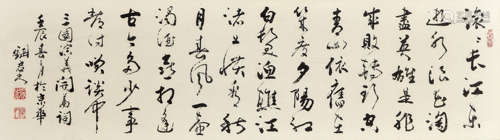 滚〻长江东
逝水浪花淘
尽英雄是非
成败转头空
青山依旧在
几度夕阳红
白发渔樵江
渚上惯看秋
月春风一壶
浊酒喜相逢
古今多少事
都付笑谈中
三國演义开篇词
壬辰春月於京华